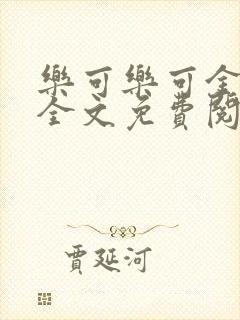 樂可樂可全
全文免費閱
賈延河